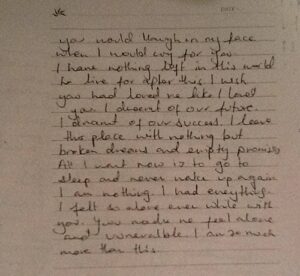 you would laugh in my face
when I would cry for you
I have nothing left in this world
to live for after this I wish
you had loved me like I loved
you. I dreamt of our future.
I dreamt of our success. I leave
this place with nothing but
broken dreams and empty promises
All I want now is to go to
sleep and never wake up again
I am nothing. I had everything.
I felt so alone even while with
you. You made me feel alone
and vulnerable. I am so much
more than this.